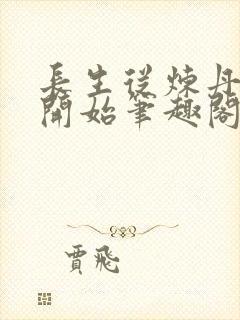 長生從煉丹
開始筆趣閣
賈飛